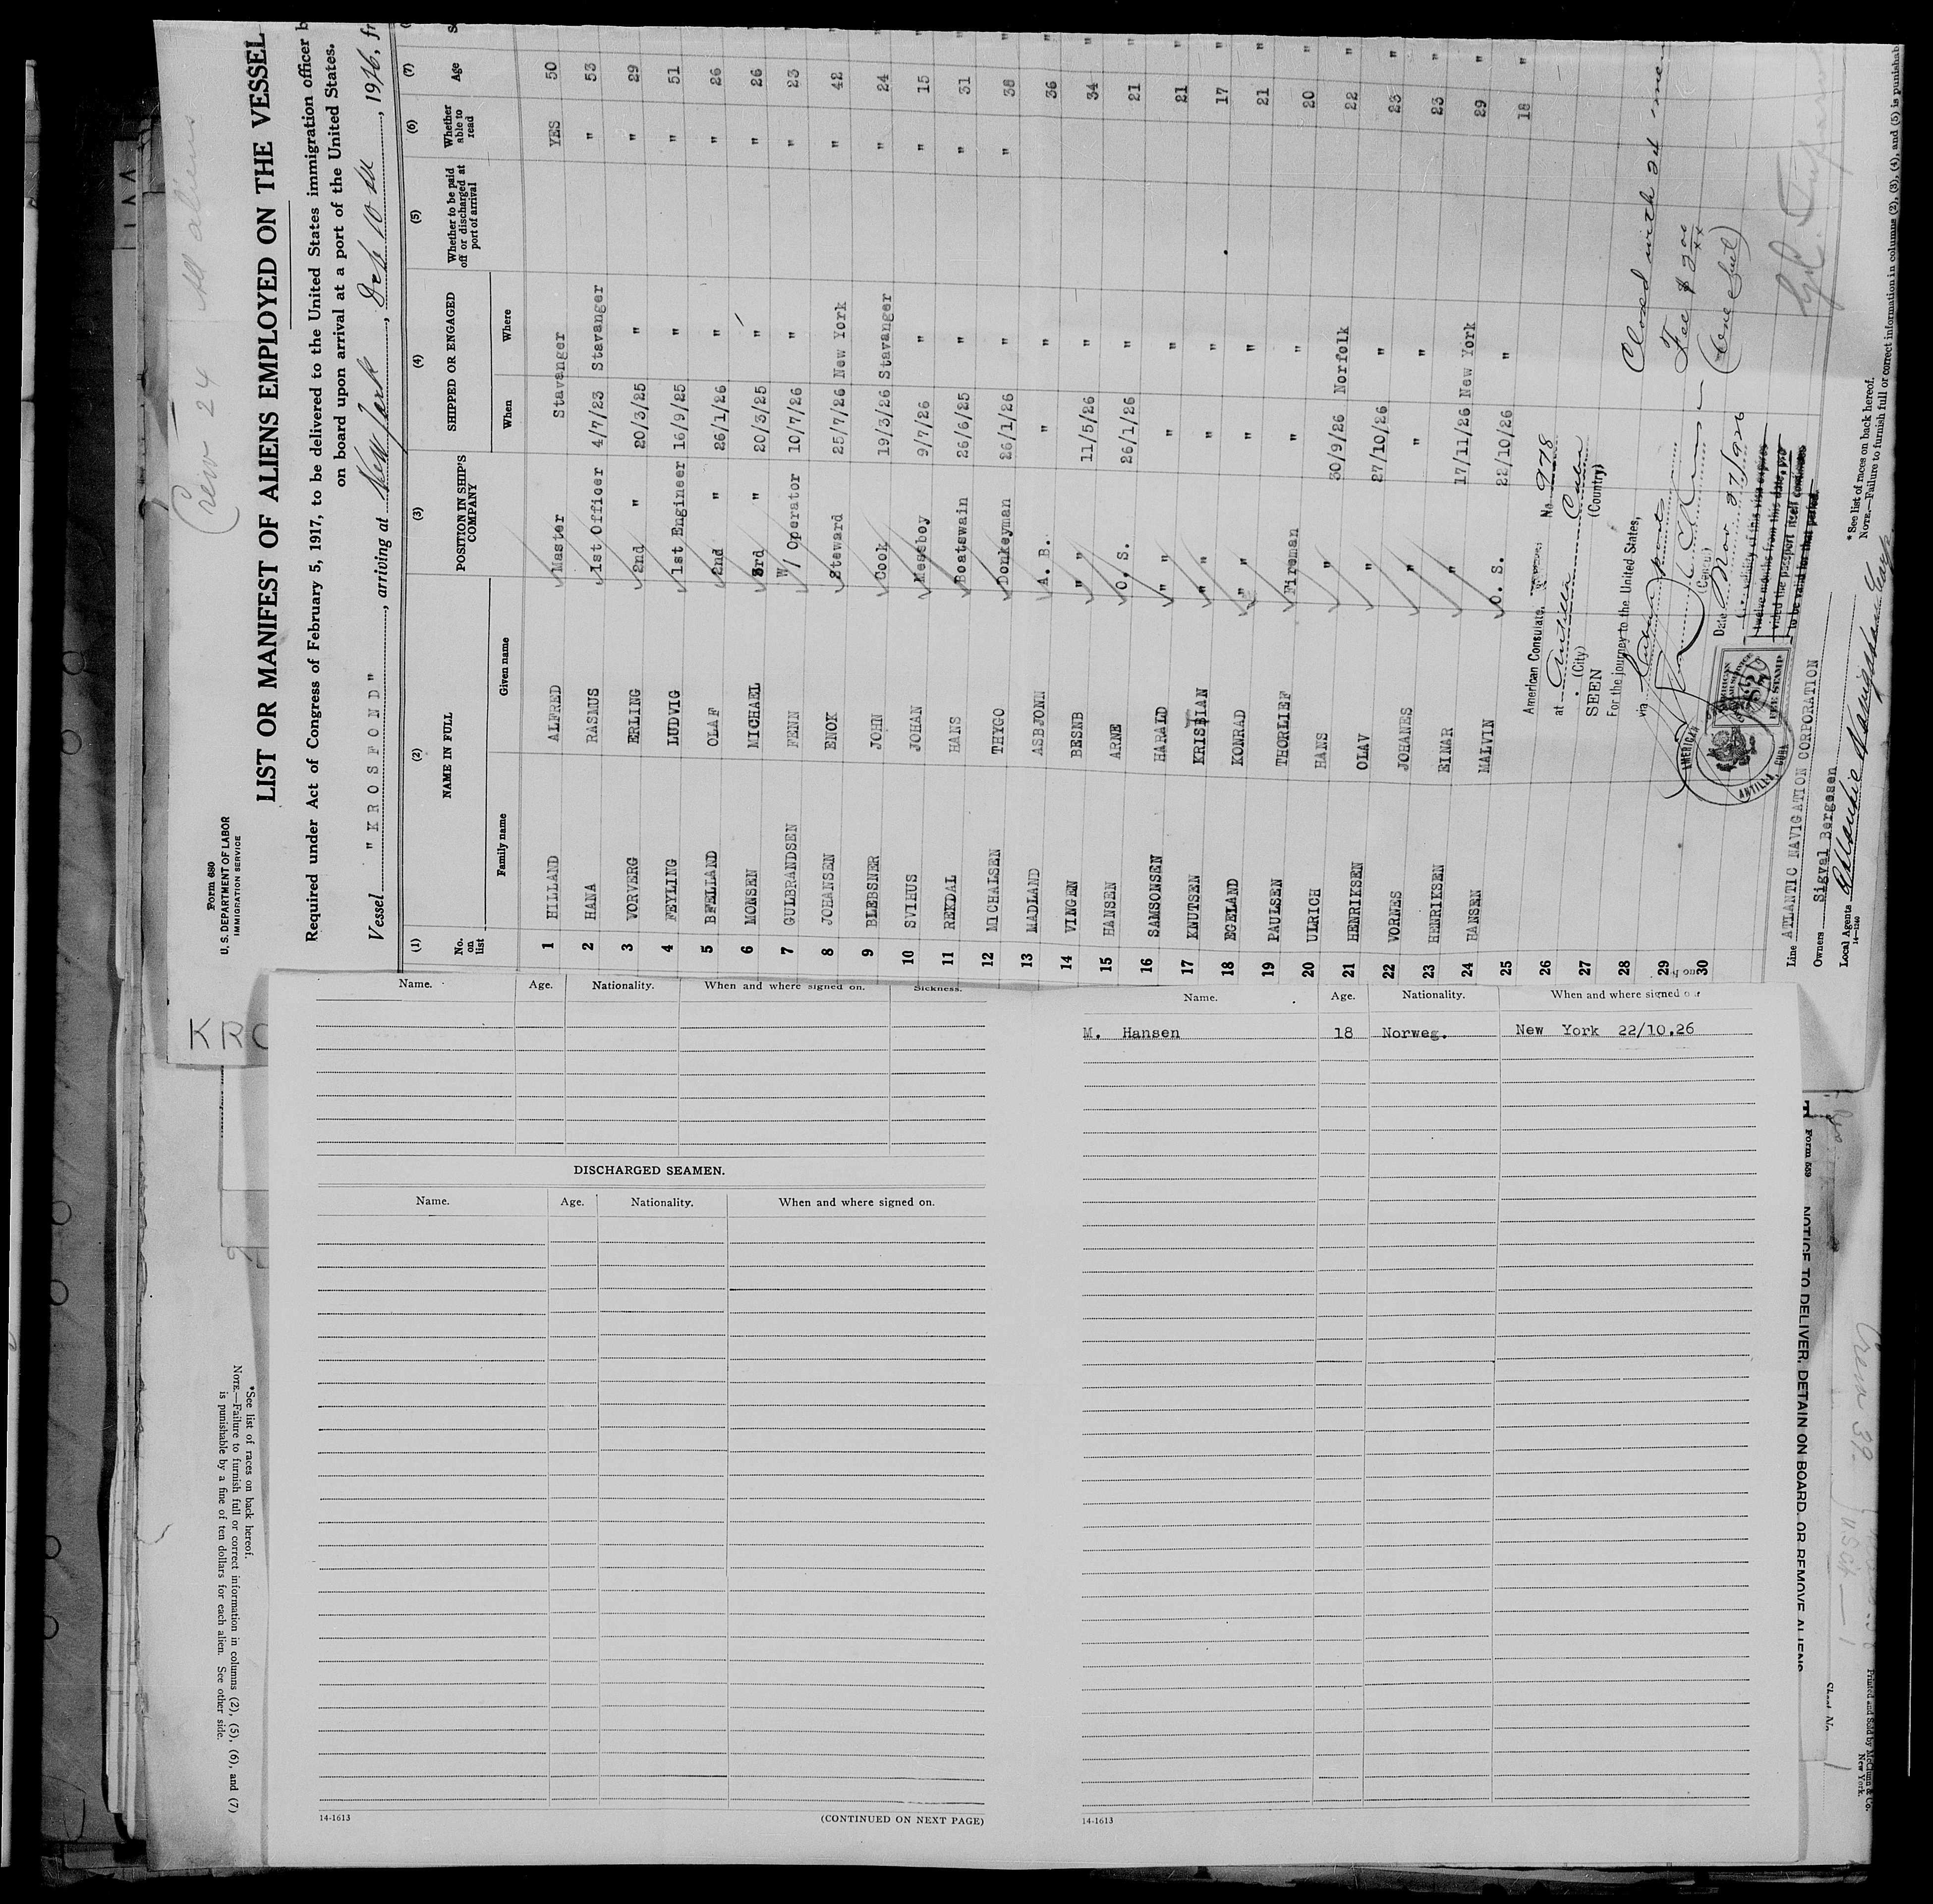 Crew 24 All aliens
Form 680
U. S. DEPARTMENT OF LABOR
IMMIGRATION SERVICE
LIST OR MANIFEST OF ALIENS EMPLOYED ON THE VESSEL
Required under Act of Congress of February 5, 1917, to be delivered to the United States immigration officer b
on board upon arrival at a port of the United States.
Vessel "KROSFOND", arriving at New York, Dec 10th, 1926, fr
(1) (2) (3) (4) (5) (6) (7)
No. on list NAME IN FULL POSITION IN SHIP'S COMPANY SHIPPED OR ENGAGED Whether to be paid off or discharged at port of arrival Whether able to read Age
Family name Given name When Where
1 HILLAND ALFRED Master Stavanger YES 50
2 HANA RASMUS 1st Officer 4/7/23 Stavanger " 53 "
3 VORVERG ERLING 2nd " 20/3/25 " " 29 "
4 FEYLING LUDVIG 1st Engineer 16/9/25 " " 51 "
5 BFELLAND OLAF 2nd " 26/1/26 " " 26 "
6 MONSEN MICHAEL 3rd " 20/3/25 " " 26 "
7 GULBRANDSEN FENN W/ Operator 10/7/26 " " 23 "
8 JOHANSEN ENOK Steward 25/7/26 New York " 42 "
9 BLEBSNER JOHN Cook 19/3/26 Stavanger " 24 "
10 SVIHUS JOHAN Messboy 9/7/26 " " 15 "
11 REKDAL HANS Boatswain 26/6/25 " " 31 "
12 MICHALSEN THYGO Donkeyman 26/1/26 " " 38 "
13 MADLAND ASBJONN A. B. " " 36 "
14 VINGEN BESNB " " 11/5/26 " 34 "
15 HANSEN ARNE O. S. 26/1/26 " 21 "
16 SAMSONSEN HARALD " " " " 21 "
17 KNUTSEN KRISTIAN " " " " 17 "
18 EGELAND KONRAD " " " " 21 "
19 PAULSEN THORLIEF Fireman " " 20 "
20 ULRICH HANS " 30/9/26 Norfolk 22 "
21 HENRIKSEN OLAV " 27/10/26 " 23 "
22 VORNES JOHANES " " " 23 "
23 HENRIKSEN EINAR " 17/11/26 New York 29 "
24 HANSEN MALVIN O. S. 22/10/26 " 18 "
25
26
27
28
29
30
American Consulate, No. 978
at Antilla Cuba
(City) (Country)
SEEN
For the journey to the United States,
via
(Consul)
Date Nov 27/926
validity of this visa expires
twelve months from this date, pro
vided the passport itself continues
to be valid for that period.
AMERICAN
ANTILLA, CUBA
FEE STAMP
Closed with 24 names
Fee $2.00
(One Seal)
Line ATLANTIC NAVIGATION CORPORATION
Owners Sigval Bergesen
Local Agents
14—1240
*See list of races on back hereof.
NOTE.—Failure to furnish full or correct information in columns (2), (3), (4), and (5) is punishab
KRO
Name. Age. Nationality. When and where signed on. Sickness.
DISCHARGED SEAMEN.
Name. Age. Nationality. When and where signed on.
14-1613 (CONTINUED ON NEXT PAGE)
Name. Age. Nationality. When and where signed on
M. Hansen 18 Norweg. New York 22/10.26
14-1613
*See list of races on back hereof.
NOTE.—Failure to furnish full or correct information in columns (2), (5), (6), and (7)
is punishable by a fine of ten dollars for each alien. See other side.
Form 689 NOTICE TO DELIVER, DETAIN ON BOARD, OR REMOVE ALIENS
Crew 39
Printed and Sold by
New York.